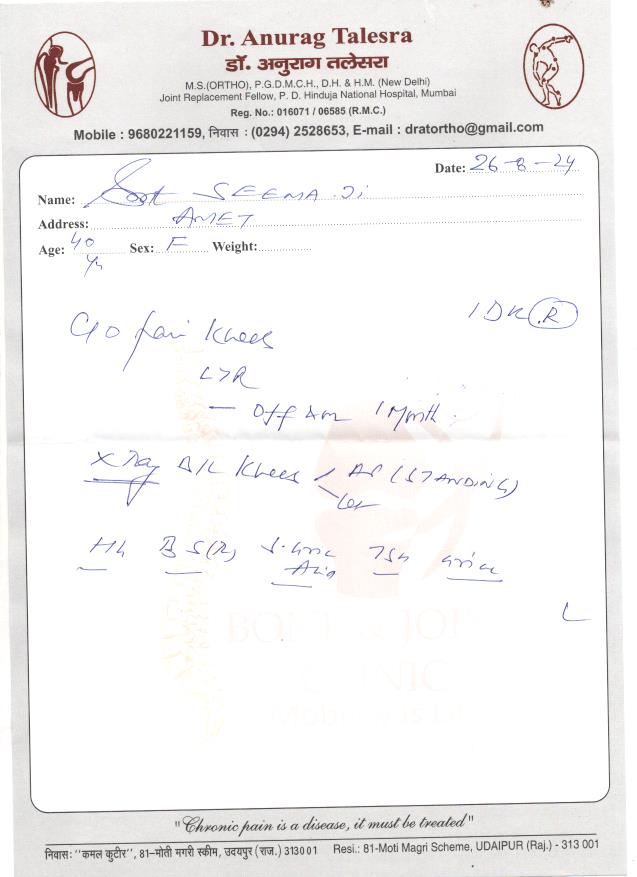 Dr. Anurag Talesra
डॉ. अनुराग तलेसरा
M.S.(ORTHO), P.G.D.M.C.H., D.H. & H.M. (New Delhi)
Joint Replacement Fellow, P. D. Hinduja National Hospital, Mumbai
Reg. No.: 016071 / 06585 (R.M.C.)
Mobile : 9680221159, निवास : (0294) 2528653, E-mail : dratortho@gmail.com
Date: 26-8-24
Name: SEEMA Ji
Address: AMET
Age: 40 Yr Sex: F Weight:
C/O Pain Knees
L>R
— Off &on 1 Month
X Ray B/L Knees AP (STANDING)
Lat
Hb BS(R) S. Uric Acid TSH Urine
BONE & JOINT
CLINIC
"Chronic pain is a disease, it must be treated"
निवास: "कमल कुटीर", 81-मोती मगरी स्कीम, उदयपुर (राज.) 313001 Resi.: 81-Moti Magri Scheme, UDAIPUR (Raj.) - 313 001